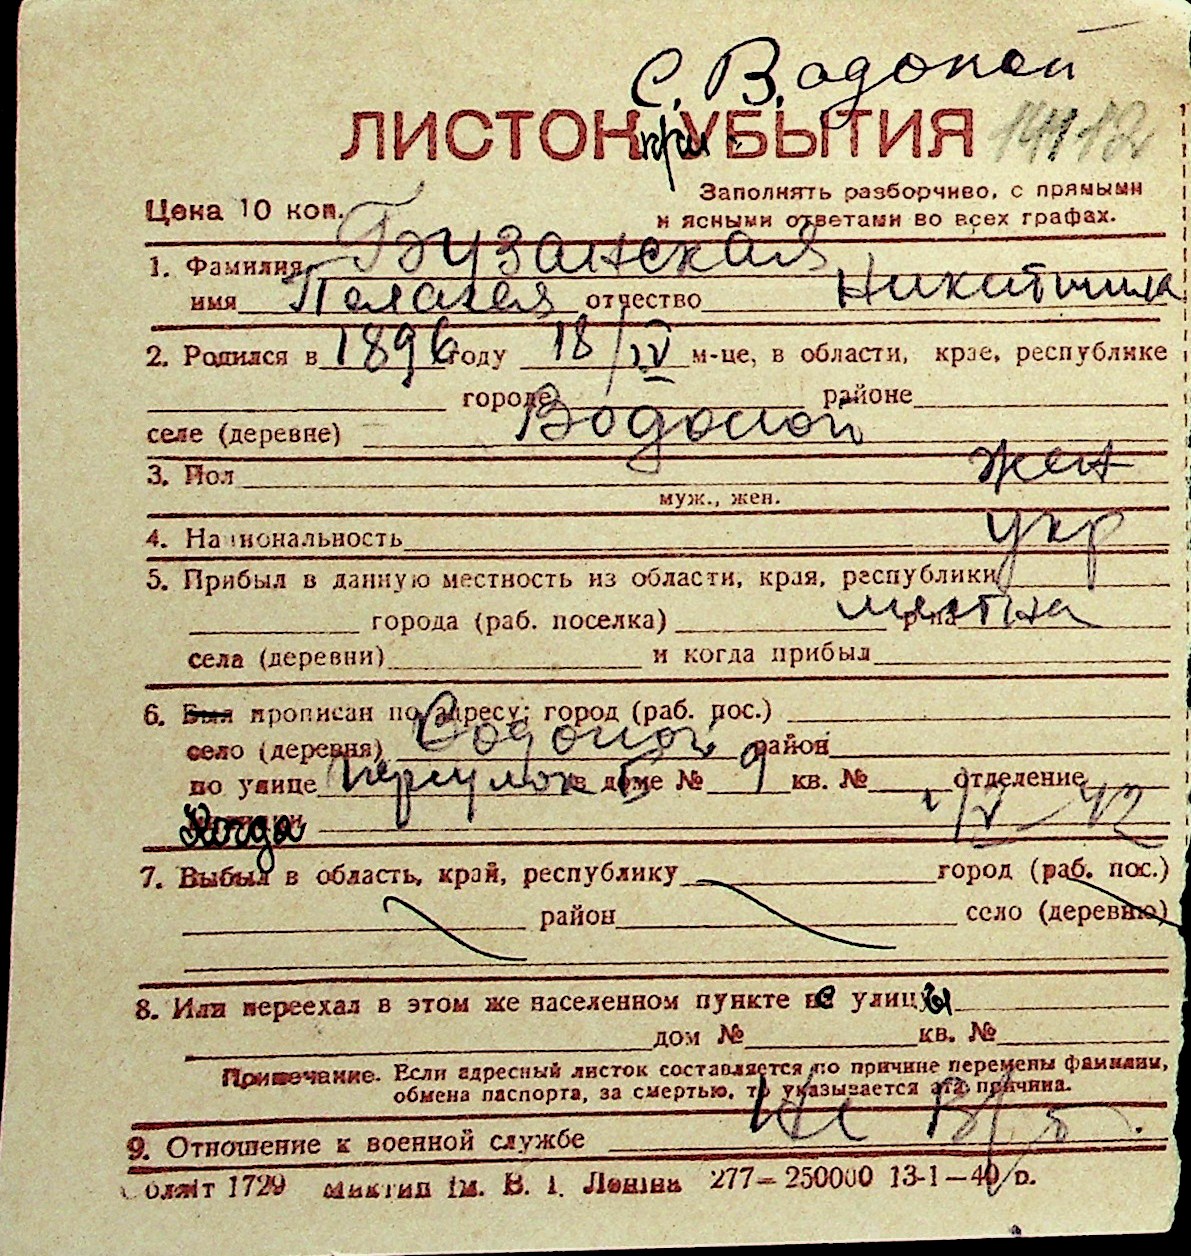 С. Водопой
ЛИСТОК при УБЫТИЯ
Цена 10 коп.
Заполнять разборчиво, с прямыми
и ясными ответами во всех графах.
1. Фамилия Бузанская
имя Пелагея отчество Никитична
2. Родился в 1896 году 18/IV м-це, в области, крае, республике
городе районе
селе (деревне) Водопой
3. Пол жен
муж., жен.
4. Национальность укр
5. Прибыл в данную местность из области, края, республики
города (раб. поселка) р-на местна
села (деревни) и когда прибыл
6. Был прописан по адресу: город (раб. пос.)
село (деревня) Водопой район
по улице переулок 5 в доме № 9 кв. № отделение
Когда 1/V-42
7. Выбыл в область, край, республику город (раб. пос.)
район село (деревню)
8. Или переехал в этом же населенном пункте с улицы
дом № кв. №
Примечание. Если адресный листок составляется по причине перемены фамилии,
обмена паспорта, за смертью, то указывается эта причина.
9. Отношение к военной службе Не в/об.
Обляіт 1729 Миктип ім. В. І. Леніна 277—250000 13-1—40 р.